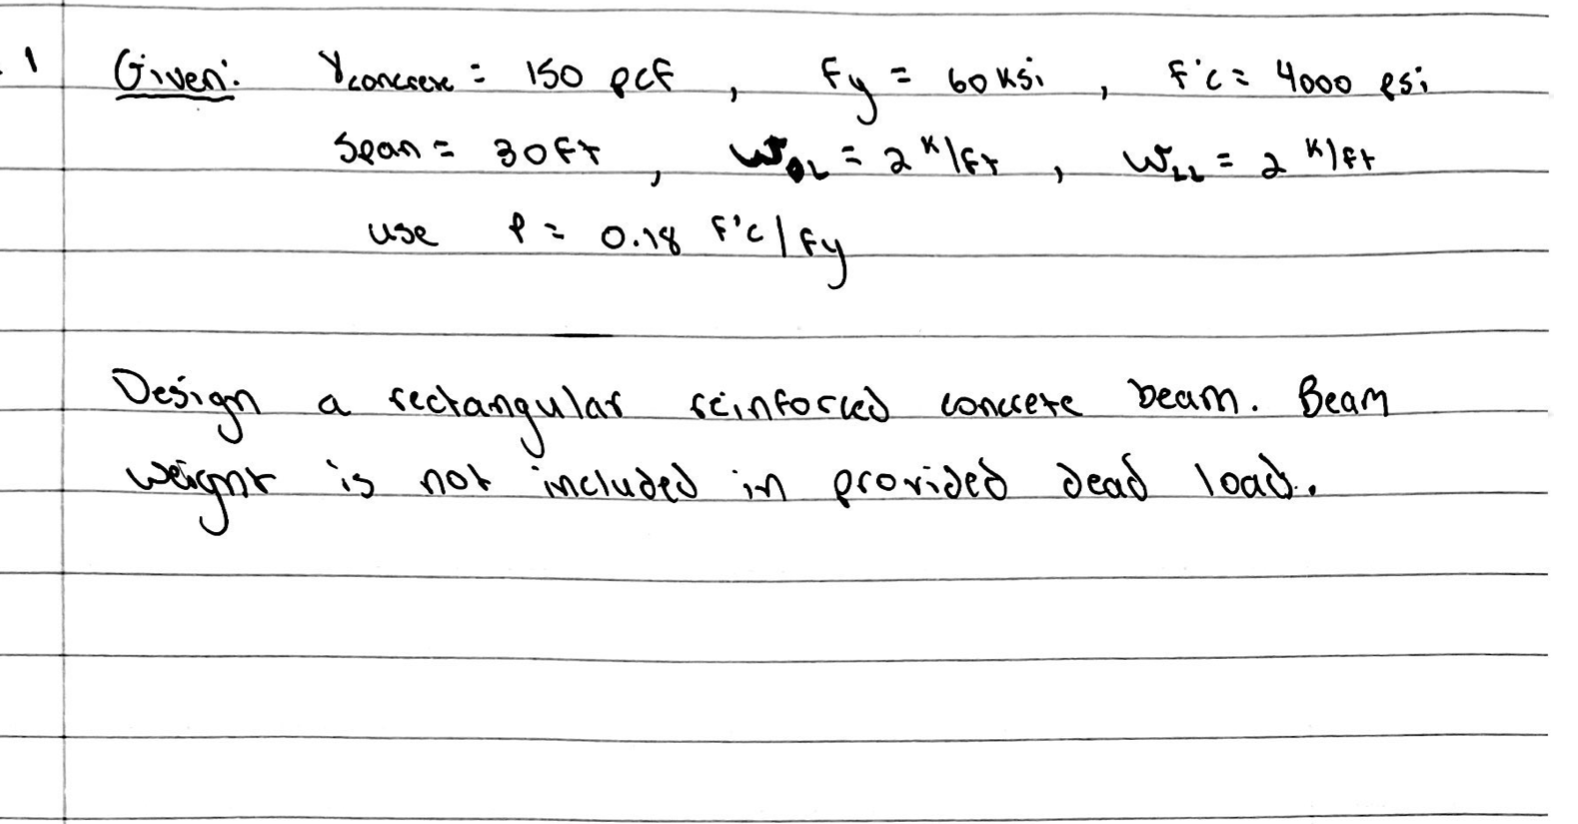 .1 Given: γconcrete = 150 pcf , fy = 60 ksi , f'c = 4000 psi
Span = 30 ft , WDL = 2 k/ft , WLL = 2 k/ft
use ρ = 0.18 f'c/fy
Design a rectangular reinforced concrete beam. Beam
weight is not included in provided dead load.